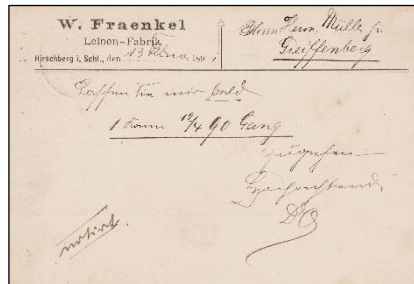 W. Fraenkel
Leinen-Fabrik
Hirschberg i. Schl., den 13 189
Herrn Herm. Müller jr.
Greiffenberg
Lassen Sie mir bald
1 12/4 90 Gang
zugehen
Hochachtend
notirt.